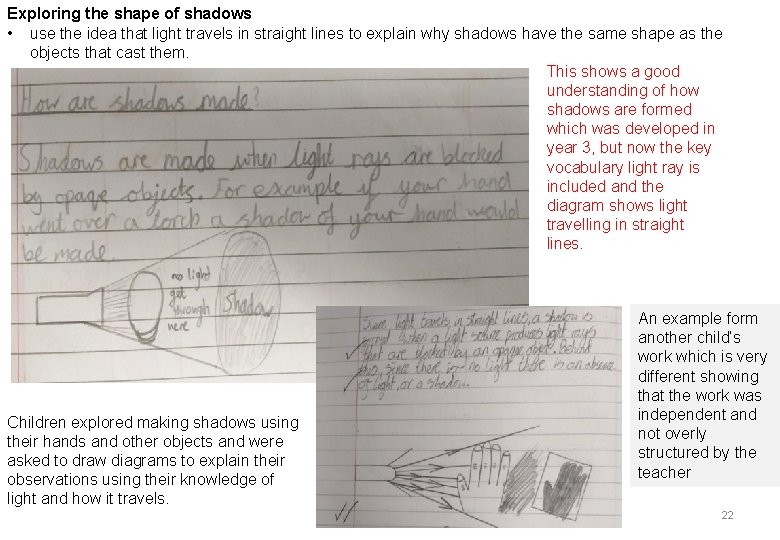 Exploring the shape of shadows
• use the idea that light travels in straight lines to explain why shadows have the same shape as the
objects that cast them.
This shows a good
understanding of how
shadows are formed
which was developed in
year 3, but now the key
vocabulary light ray is
included and the
diagram shows light
travelling in straight
lines.
How are shadows made?
Shadows are made when light rays are blocked
by opaqe objects. For example if your hand
went over a torch a shadow of your hand would
be made.
no light
get
through
here
Shadow
Since light travels in straight lines, a shadow is
formed when a light source produces light rays
that are blocked by an opaque object. Behind
this, since there is no light there is an absence
of light, or a shadow.
An example form
another child's
work which is very
different showing
that the work was
independent and
not overly
structured by the
teacher
Children explored making shadows using
their hands and other objects and were
asked to draw diagrams to explain their
observations using their knowledge of
light and how it travels.
22